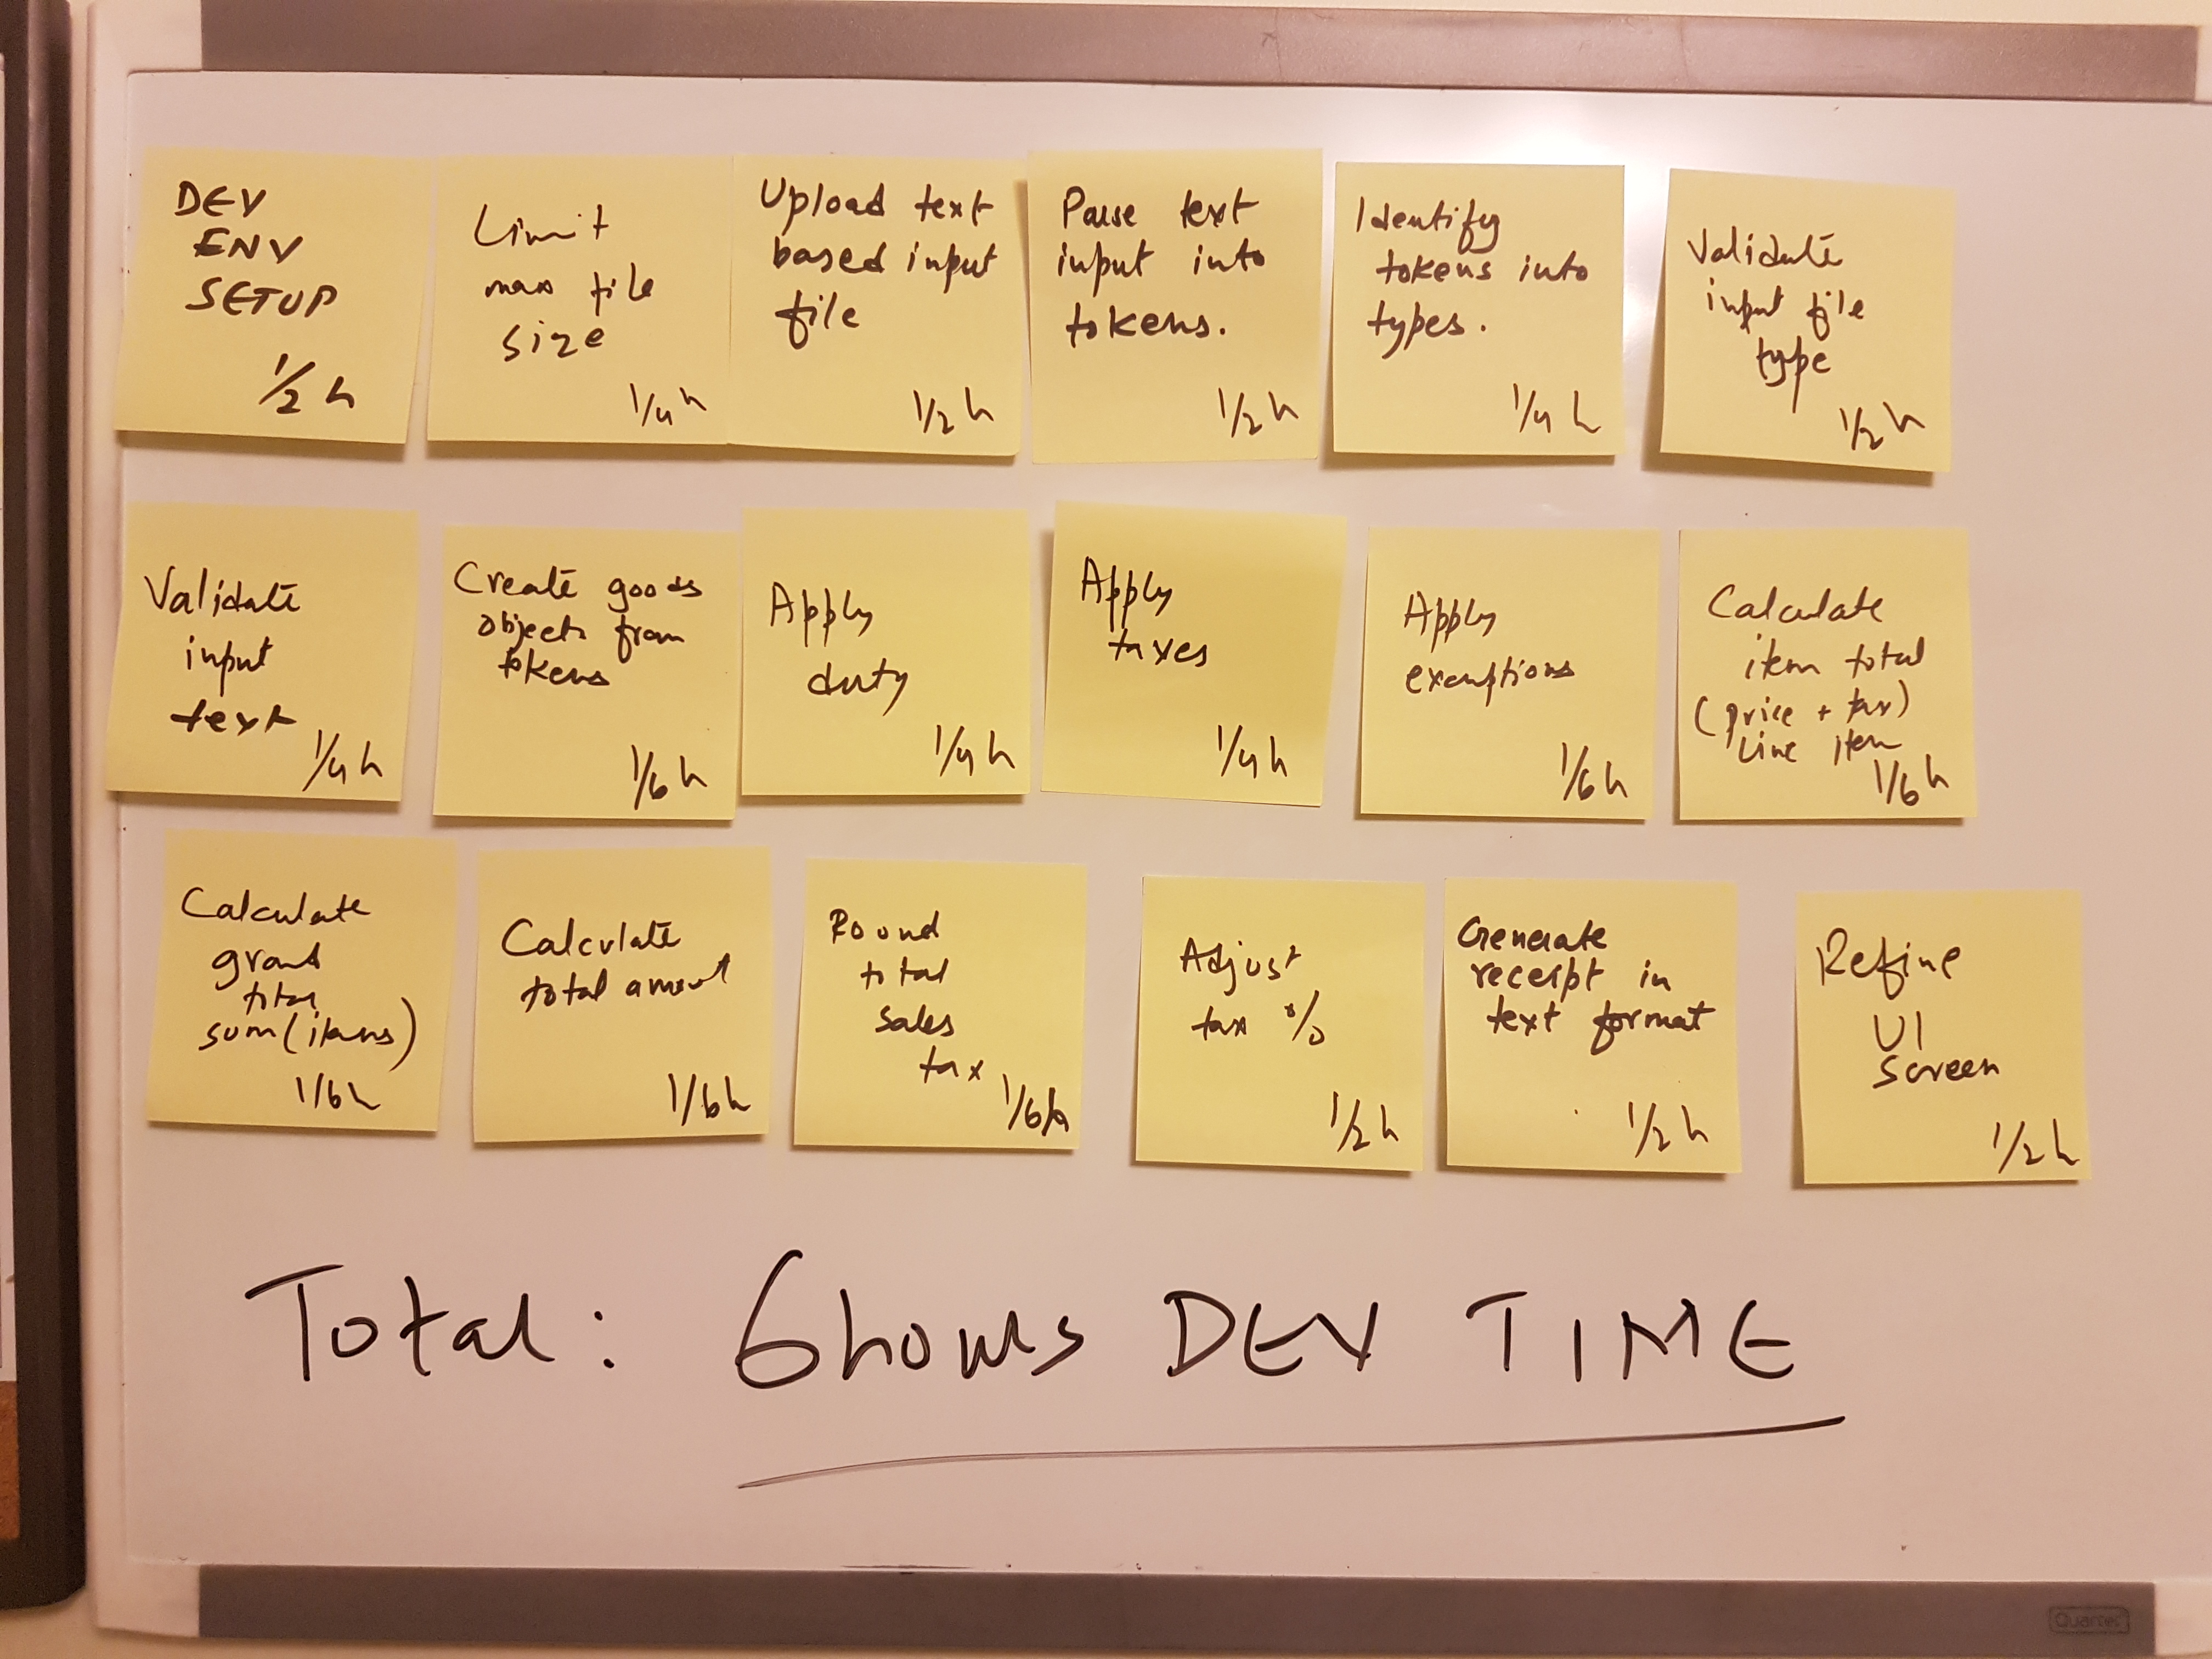 DEV
ENV
SETUP
1/2 h
Limit
max file
size
1/4 h
Upload text
based input
file
1/2 h
Parse text
input into
tokens.
1/2 h
Identify
tokens into
types.
1/4 h
Validate
input file
type
1/2 h
Validate
input
text
1/4 h
Create goods
objects from
tokens
1/6 h
Apply
duty
1/4 h
Apply
taxes
1/4 h
Apply
exemptions
1/6 h
Calculate
item total
(price + tax)
Line item
1/6 h
Calculate
grand
total
sum(items)
1/6 h
Calculate
total amout
1/6 h
Round
total
sales
tax
1/6 h
Adjust
tax %
1/2 h
Generate
receipt in
text format
1/2 h
Refine
UI
screen
1/2 h
Total: 6 hours DEV TIME
Quartet